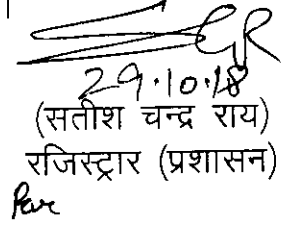 29.10.18
(सतीश चन्द्र राय)
रजिस्ट्रार (प्रशासन)